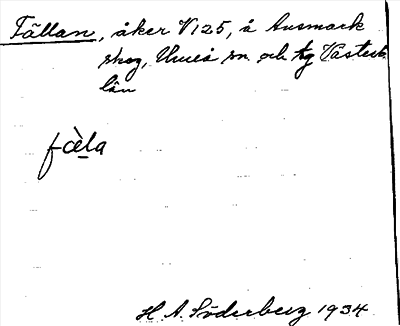 Fällan, åker V125, å Ansmark
skog, Umeå sn och tg Västerb.
län
fà̱ela
H. A. Söderberg 1934